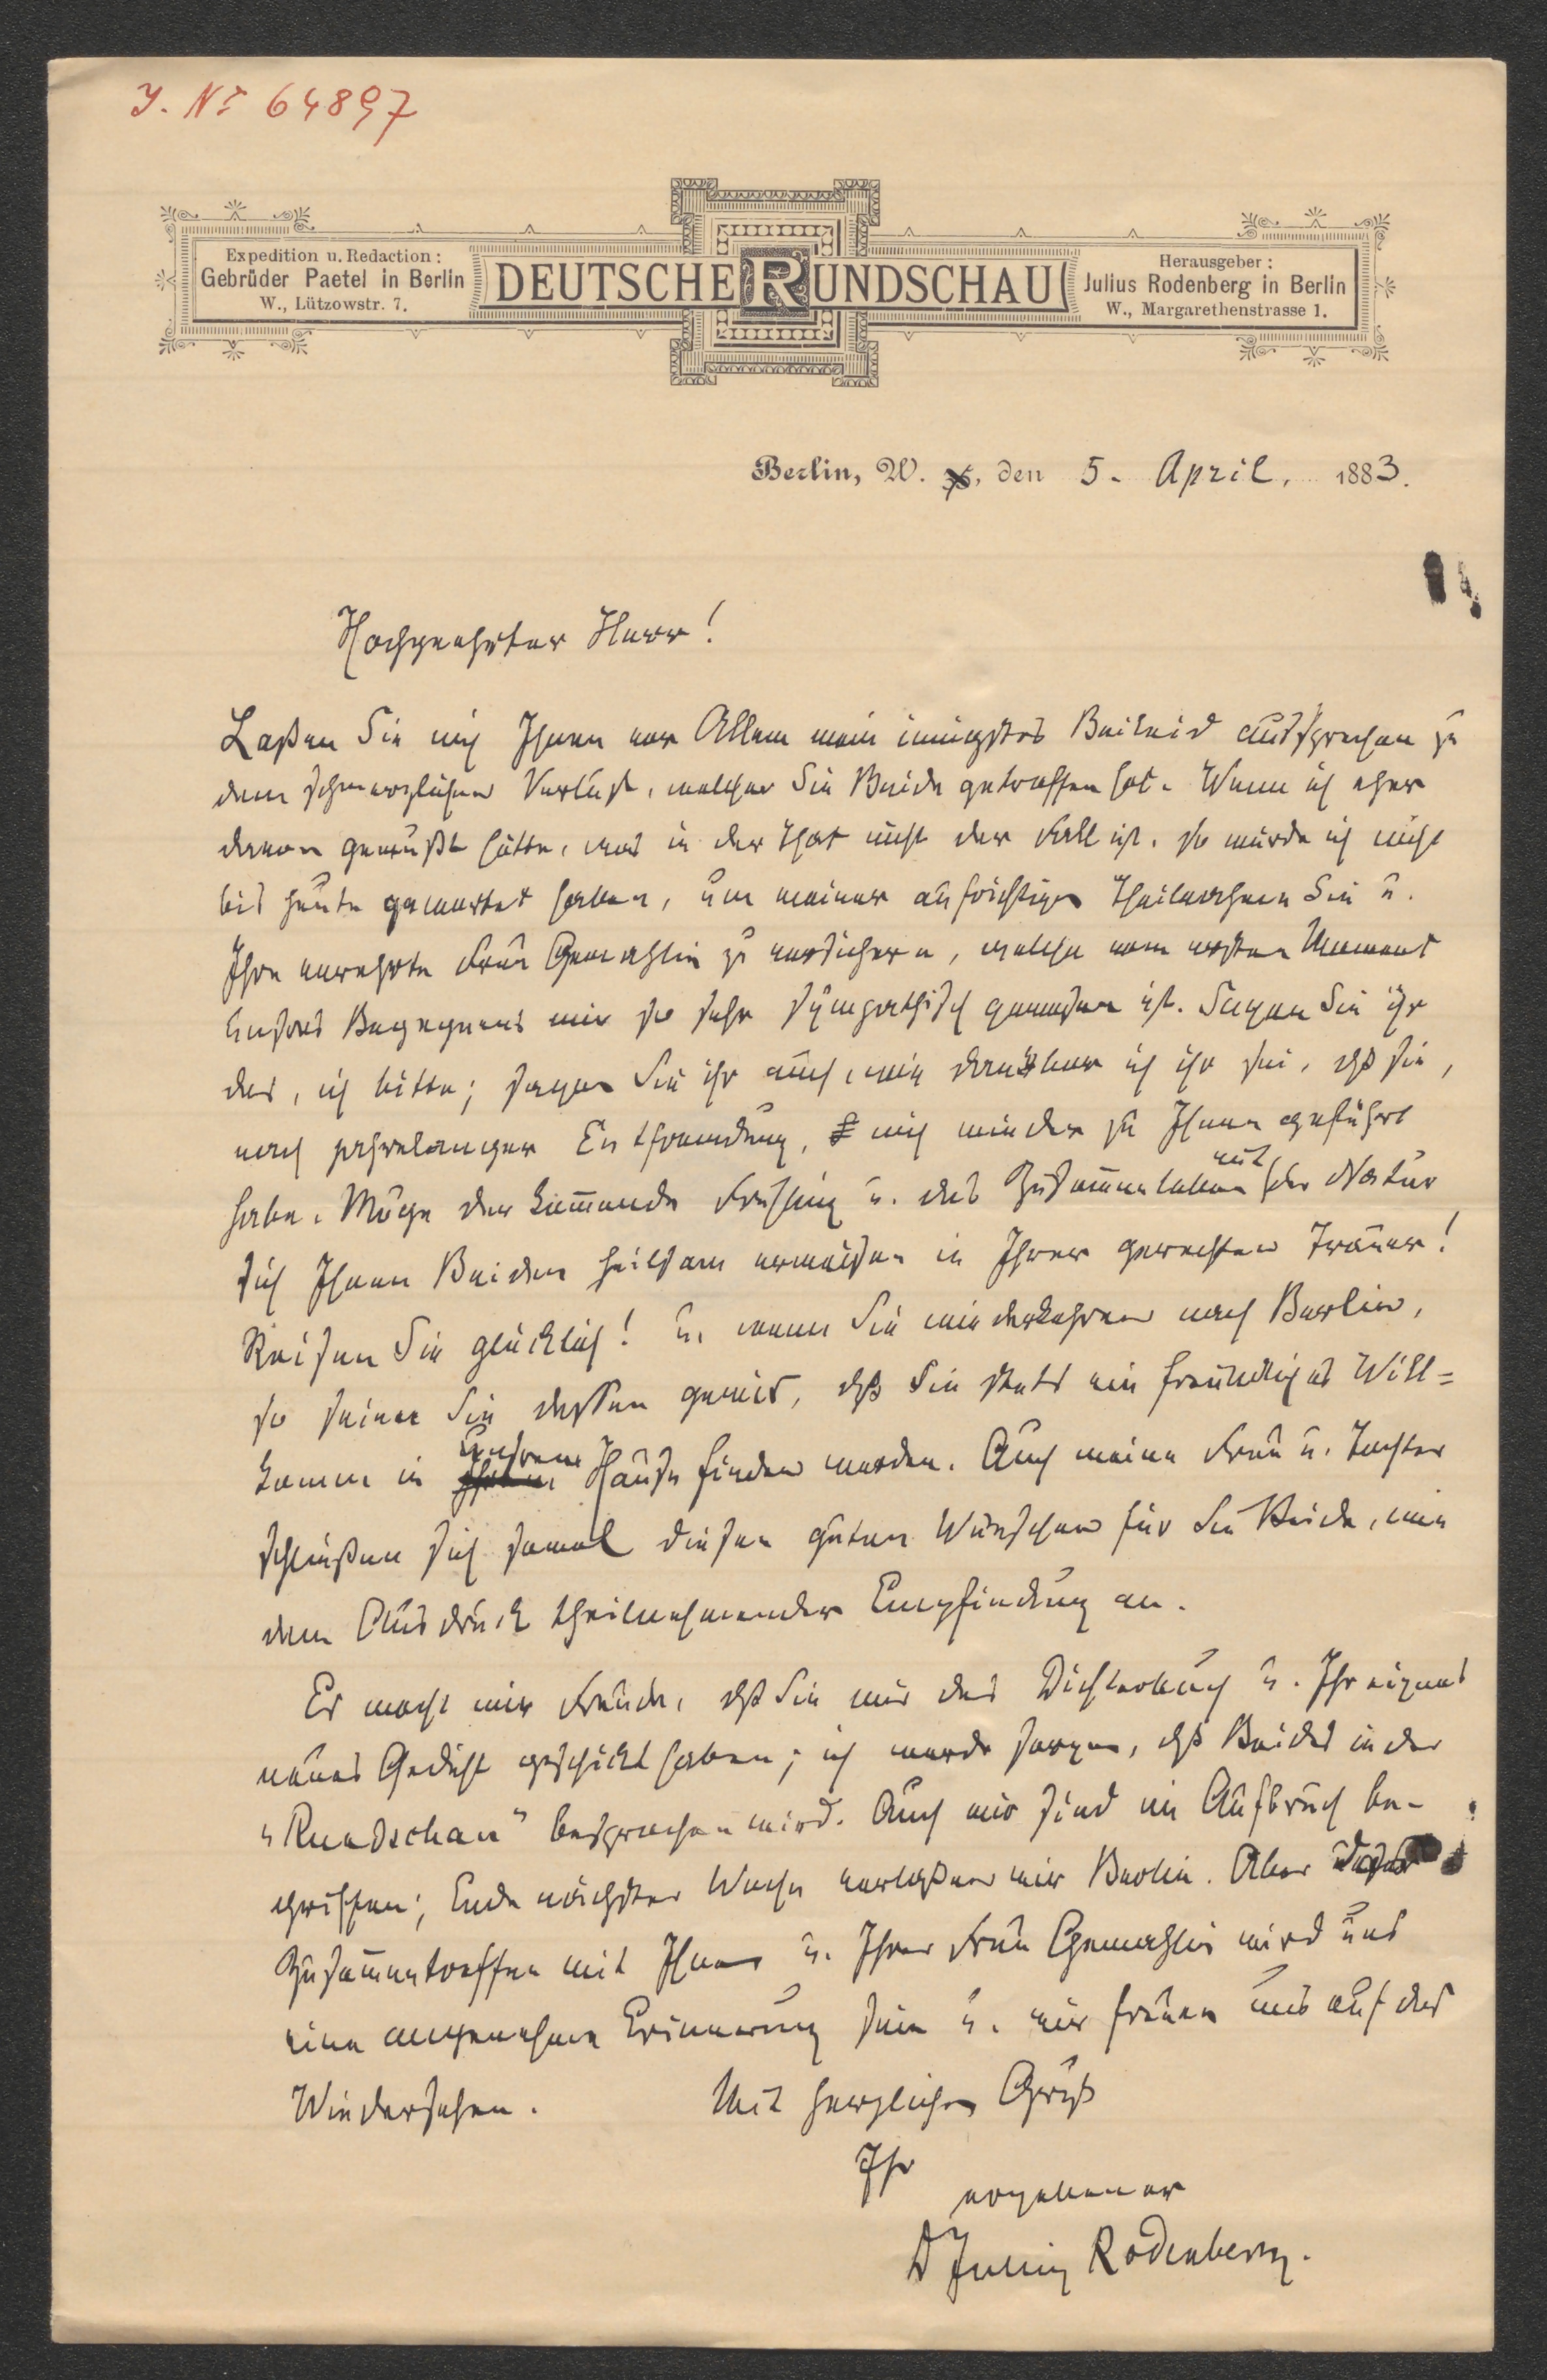 J. Nr 64897
Expedition u. Redaction:
Gebrüder Paetel in Berlin
W., Lützowstr. 7.
DEUTSCHE RUNDSCHAU
Herausgeber:
Julius Rodenberg in Berlin
W., Margarethenstrasse 1.
Berlin, W. , den 5. April, 1883.
Hochgeehrter Herr!
Laßen Sie mich Ihnen vor Allem mein innigstes Beileid aussprechen zu
dem schmerzlichen Verlust, welcher Sie Beide getroffen hat. Wenn ich eher
davon gewußt hätte, was in der That nicht der Fall ist, so würde ich nicht
bis heute gewartet haben, um meiner aufrichtigen Theilnahme Sie u.
Ihre verehrte Frau Gemahlin zu versichern, welche vom ersten Moment
unsres Begegnens mir so sehr sympathisch gewesen ist. Sagen Sie ihr
das, ich bitte; sagen Sie ihr auch, wie dankbar ich ihr sei, daß sie,
nach jahrelanger Entfremdung, mich wieder zu Ihnen geführt
habe. Möge der kom̄ende Frühling u. das Zusam̄enleben mit der Natur
sich Ihnen Beiden heilsam erweisen in Ihrer gerechten Trauer!
Reisen Sie glücklich! u. wenn Sie wiederkehren nach Berlin,
so seien Sie dessen gewiß, daß Sie stets ein freundliches Will=
komm in unsrem Hause finden werden. Auch meine Frau u. Tochter
schließen sich sowol diesen guten Wünschen für Sie Beide, wie
dem Ausdruck theilnehmender Empfindung an.
Es macht mir Freude, daß Sie mir das Dichterbuch u. Ihr eignes
neues Gedicht geschickt haben; ich werde sorgen, daß Beides in der
„Rundschau" besprochen wird. Auch wir sind im Aufbruch be-
griffen; Ende nächster Woche verlaßen wir Berlin. Aber
Zusam̄entreffen mit Ihnen u. Ihrer Frau Gemahlin wird uns
eine angenehme Erinnerung sein u. wir freuen uns auf das
Wiedersehen. Mit herzlichem Gruß
Ihr
ergebener
D Julius Rodenberg.